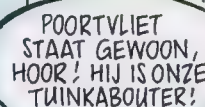 POORTVLIET
STAAT GEWOON,
HOOR! HIJ IS ONZE
TUINKABOUTER!